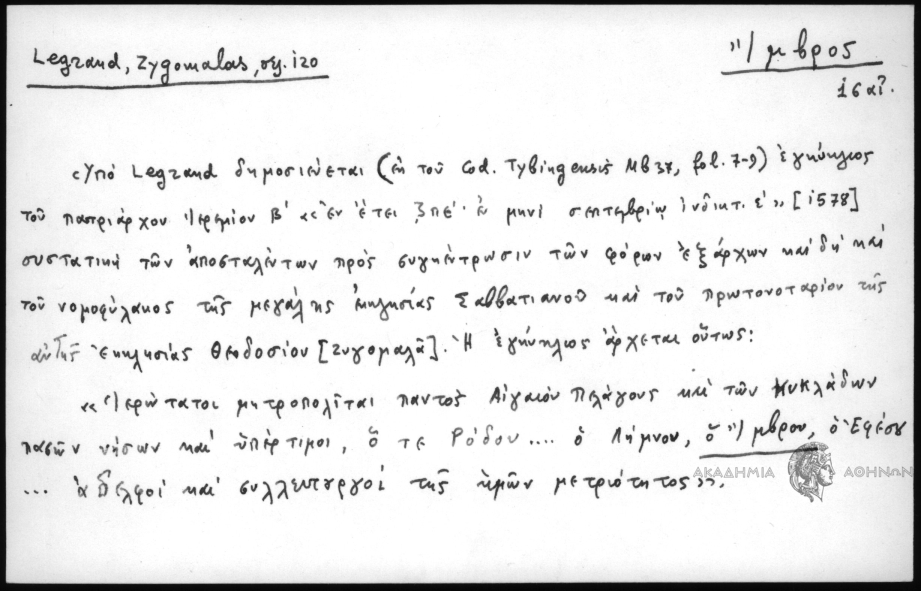 Legrand, Zygomalas, σελ. 120
Ἴμβρος
16 αἰ.
Ὑπὸ Legrand δημοσιεύεται (ἐκ τοῦ Cod. Tybingensis Mb 37, fol. 7-9) ἐγκύκλιος
τοῦ πατριάρχου Ἱερεμίου Β' «ἐν ἔτει ζπε'· ἐν μηνὶ σεπτεμβρίῳ ἰνδικτ. ε'» [1578]
συστατικὴ τῶν ἀποσταλέντων πρὸς συγκέντρωσιν τῶν φόρων ἐξάρχων καὶ δὴ καὶ
τοῦ νομοφύλακος τῆς μεγάλης ἐκκλησίας Σαββατιανοῦ καὶ τοῦ πρωτονοταρίου τῆς
αὐτῆς ἐκκλησίας Θεοδοσίου [Ζυγομαλᾶ]. Ἡ ἐγκύκλιος ἄρχεται οὕτως:
«Ἱερώτατοι μητροπολῖται παντὸς Αἰγαίου Πελάγους καὶ τῶν Κυκλάδων
πασῶν νήσων καὶ ὑπέρτιμοι, ὅ τε Ρόδου.... ὁ Λήμνου, ὁ Ἴμβρου, ὁ Ἐφέσου
... ἀδελφοὶ καὶ συλλειτουργοὶ τῆς ἡμῶν μετριότητος».
ΑΚΑΔΗΜΙΑ ΑΘΗΝΩΝ